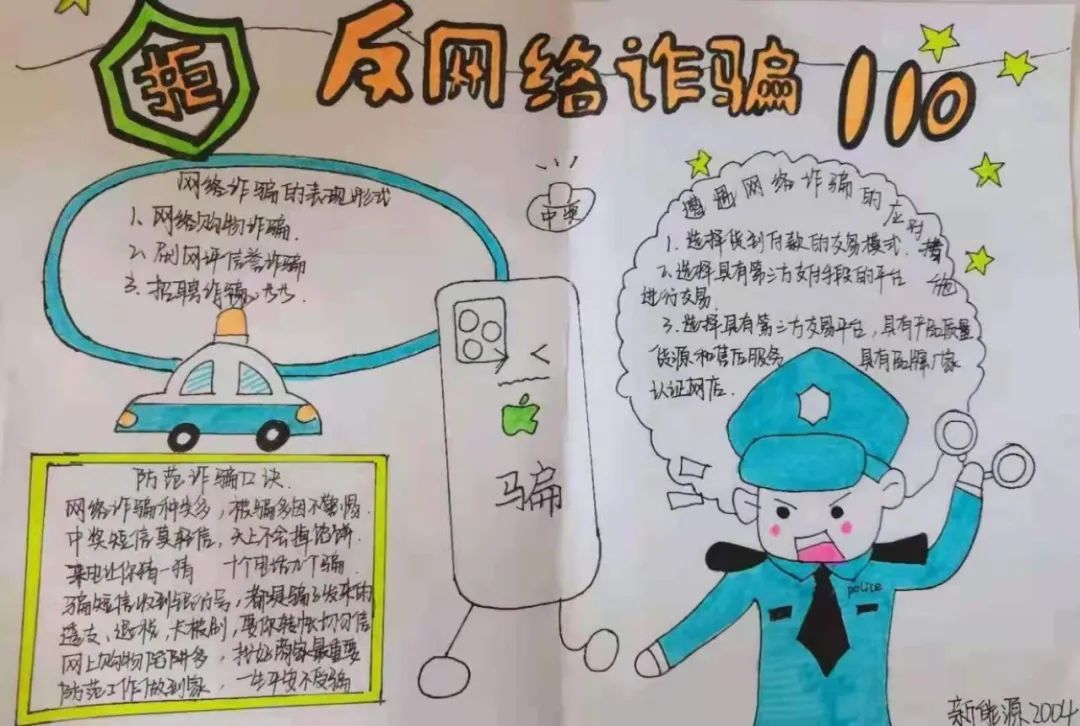 拒
反网络诈骗110
网络诈骗的表现形式
1、网络购物诈骗.
2、刷网评信誉诈骗
3、招聘诈骗
中奖
遭遇网络诈骗的应对措施
1.选择货到付款的交易模式.
2.选择具有第三方支付手段的平台
进行交易.
3.选择具有第三方交易平台，具有产品质量
货源和售后服务 具有品牌厂家
认证网店.
骗
防范诈骗口诀.
网络诈骗种类多，被骗多因不警惕.
中奖短信莫轻信，天上不会掉馅饼.
来电让你猜一猜 十个电话九个骗
骗短信收到银行号，都是骗子发来的
退税，卡被刷，要你转帐切勿信
网上购物陷阱多，找好商家最重要
防范工作做到家，一生平安不受骗
police
新能源2004